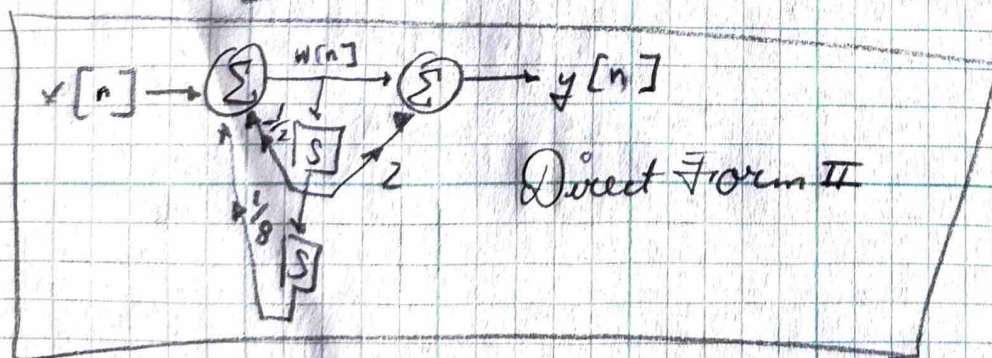 x[n] Σ w[n] Σ y[n]
1/2 S 2
Direct Form II
1/8
S